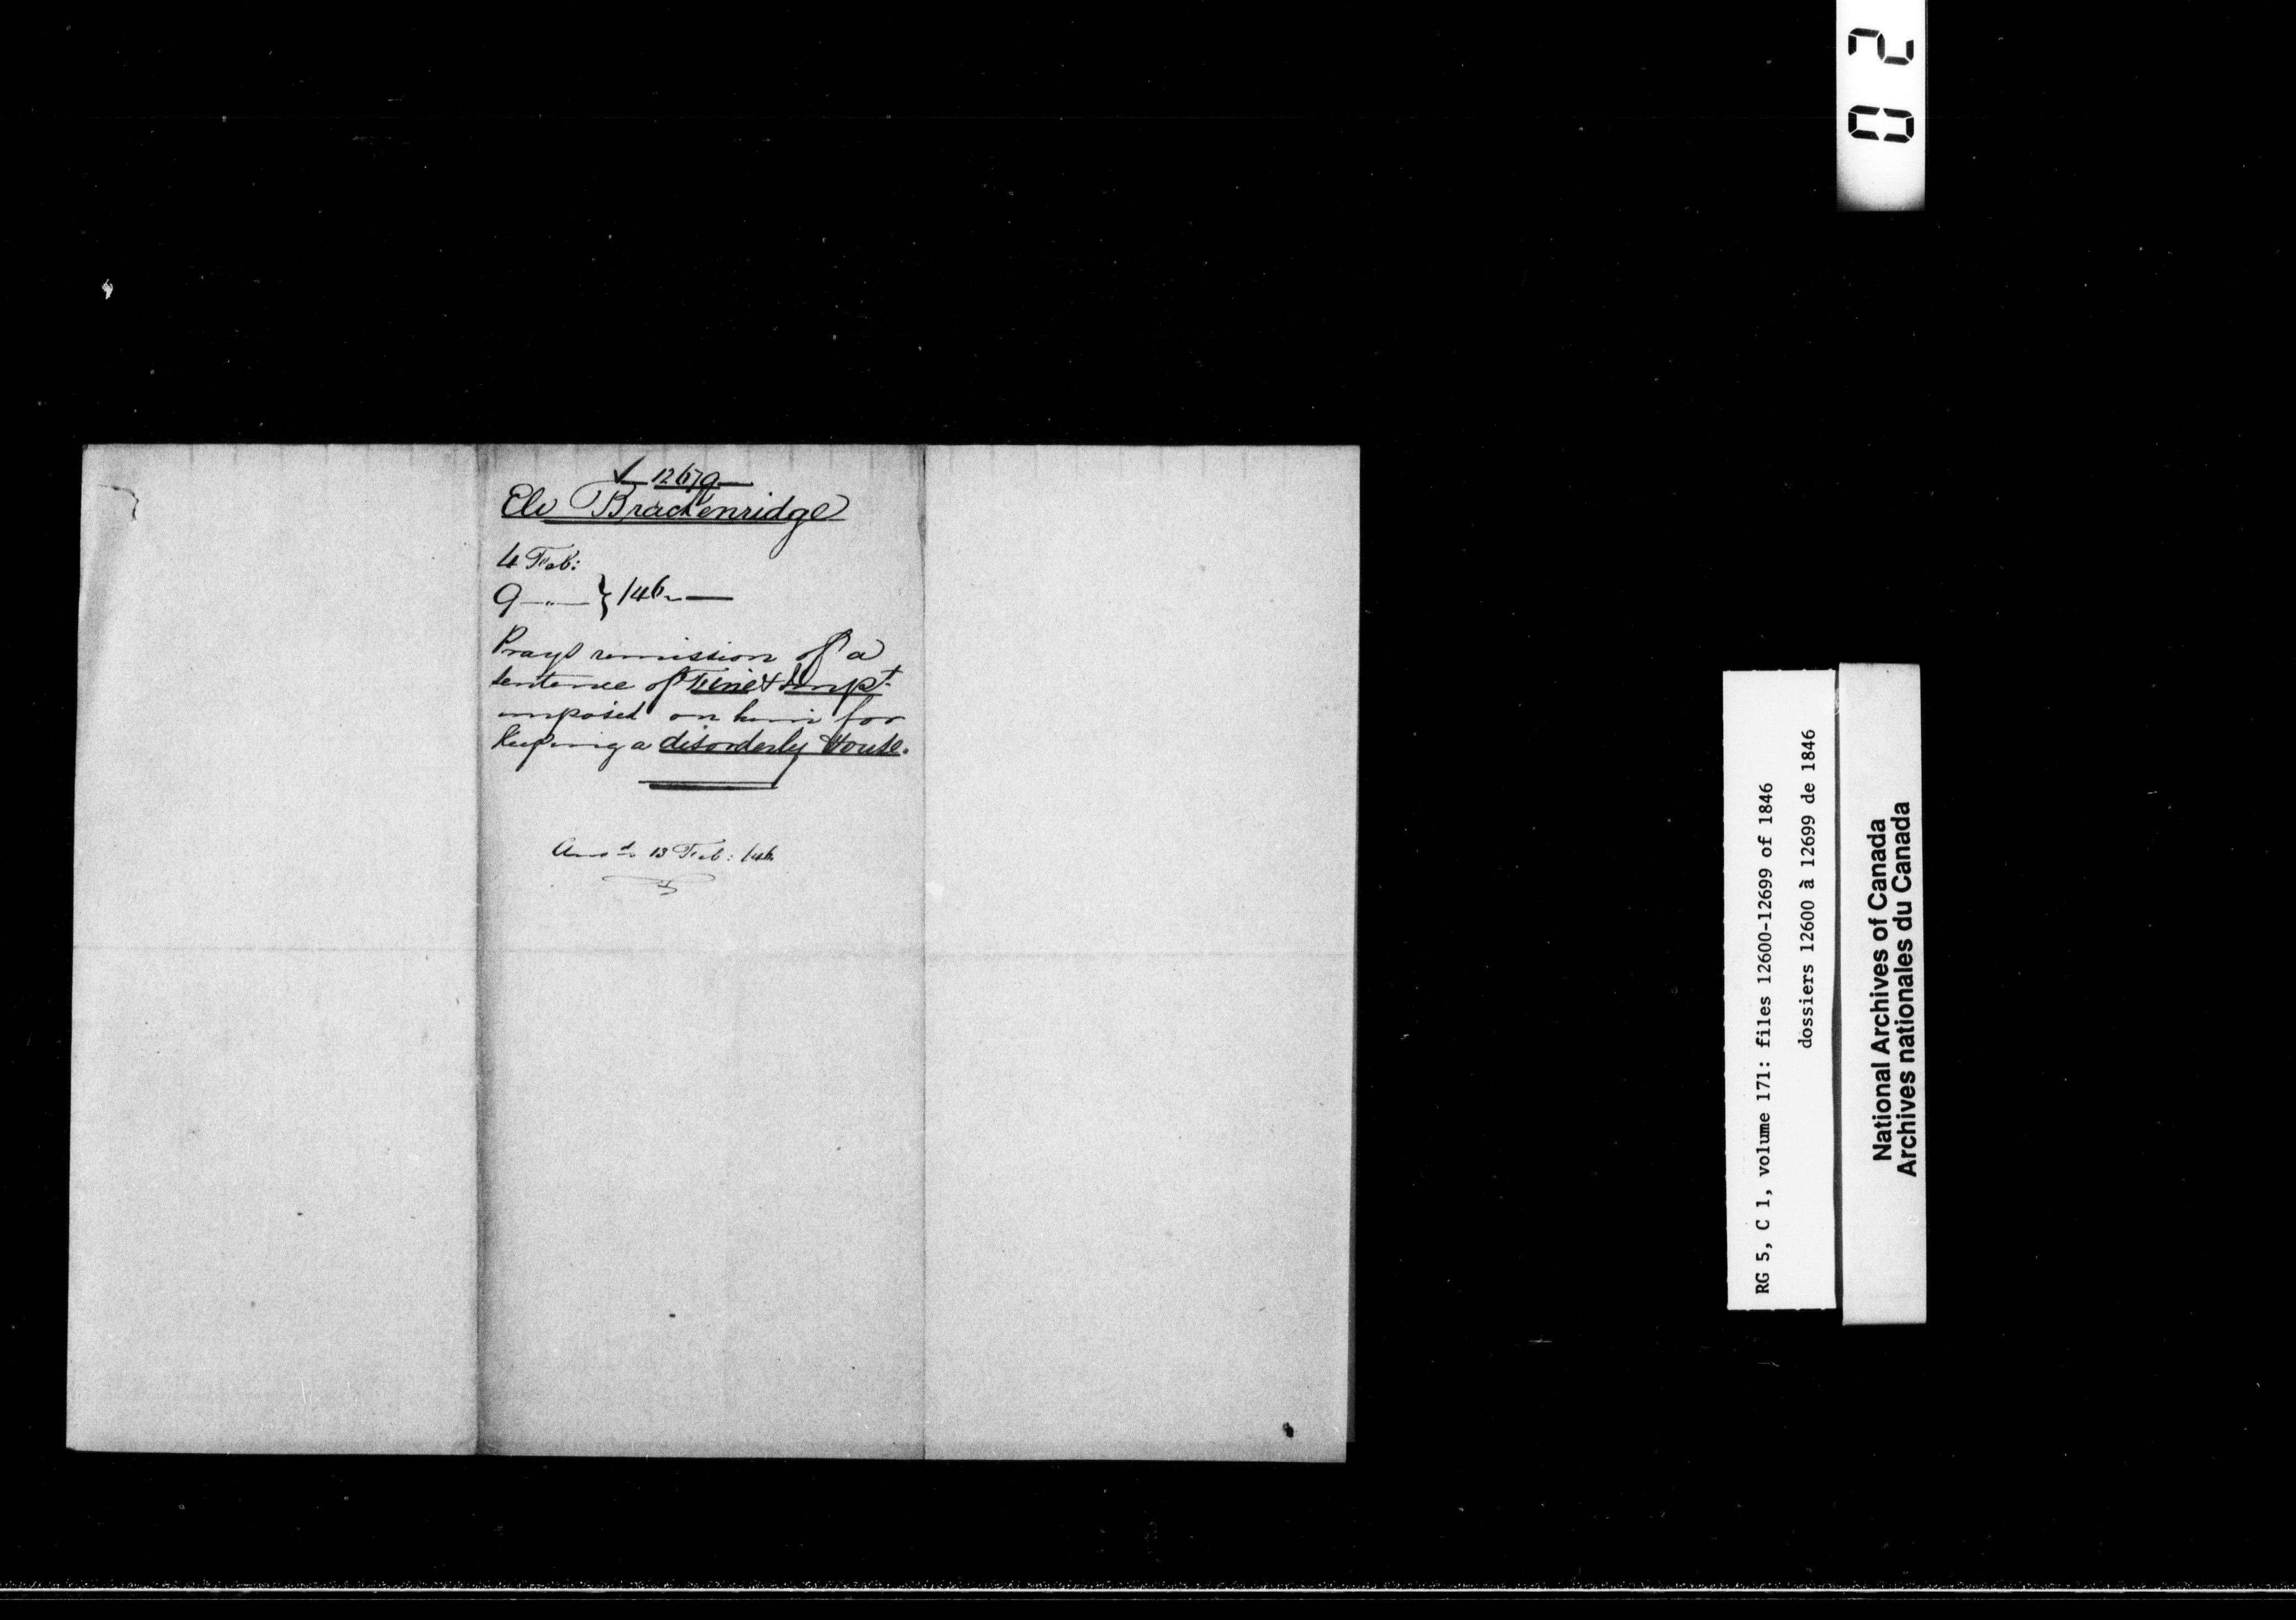 ✓ 12679
Eli Brackenridge
4 Feb:
9 —"— } /46. —
Prays remission of a
sentence of Fine & Impt.
imposed on him for
keeping a disorderly House.
Ansd. 13 Feb: /46
02
RG 5, C 1, volume 171: files 12600-12699 of 1846
dossiers 12600 à 12699 de 1846
National Archives of Canada
Archives nationales du Canada